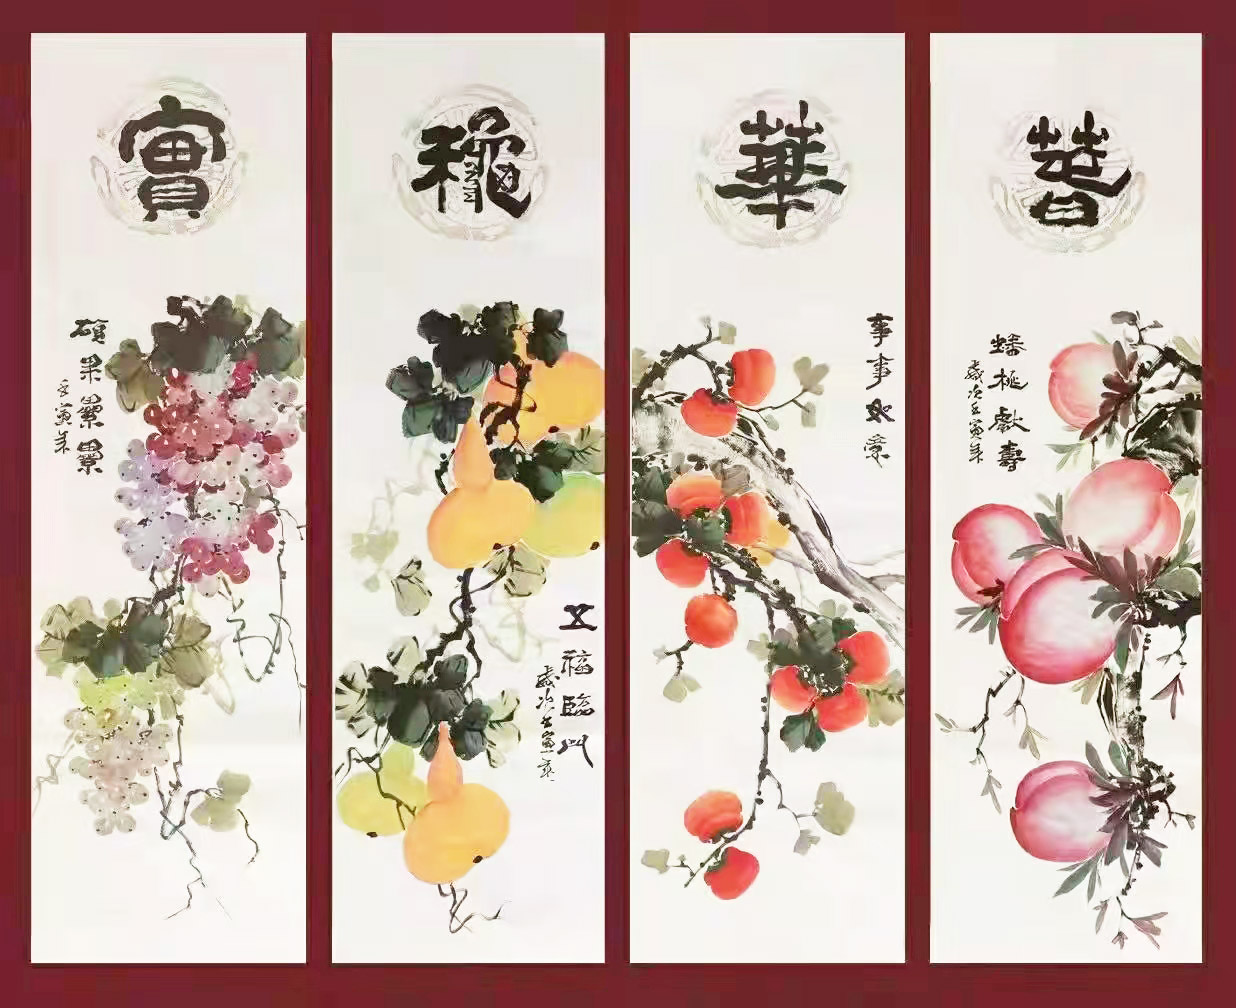 萅
蟠桃獻壽
歲次壬寅年
華
事事如意
龝
五福臨門
歲次壬寅年
實
碩果纍纍
壬寅年